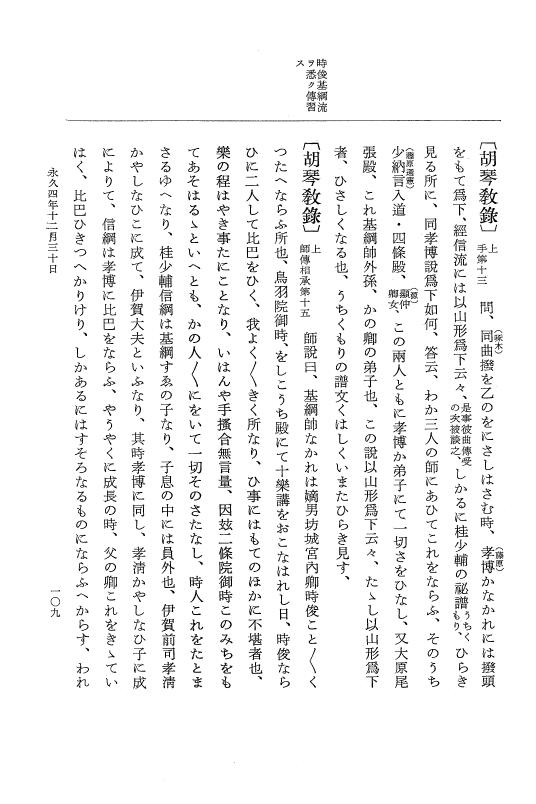 時俊基綱流
ヲ悉ク傳習
ス
〔胡琴敎錄〕上手第十三 問、同曲(啄木)撥を乙のをにさしはさむ時、孝博(藤原)かなかれには撥頭
をもて爲下、經信流には以山形爲下云々、是事彼曲傳受の次被談之、しかるに桂少輔の祕譜うちくもり、ひらき
見る所に、同孝博說爲下如何、答云、わか三人の師にあひてこれをならふ、そのうち
少納言入道(藤原通憲)・四條殿、顯仲(源)卿女、この兩人ともに孝博か弟子にて一切さをひなし、又大原尾
張殿、これ基綱師外孫、かの卿の弟子也、この說以山形爲下云々、たゝし以山形爲下
者、ひさしくなる也、うちくもりの譜文くはしくいまたひらき見す、
〔胡琴敎錄〕上師傳相承第十五 師說曰、基綱師なかれは嫡男坊城宮內卿時俊こと〱く
つたへならふ所也、鳥羽院御時、をしこうち殿にて十樂講をおこなはれし日、時俊なら
ひに二人して比巴をひく、我よく〱きく所なり、ひ事にはもてのほかに不堪者也、
樂の程はやき事たにことなり、いはんや手搔合無言量、因玆二條院御時このみちをも
てあそはるゝといへとも、かの人〱にをいて一切そのさたなし、時人これをたとま
さるゆへなり、桂少輔信綱は基綱すゑの子なり、子息の中には員外也、伊賀前司孝淸
かやしなひこに成て、伊賀大夫といふなり、其時孝博に同し、孝淸かやしなひ子に成
によりて、信綱は孝博に比巴をならふ、やうやくに成長の時、父の卿これをきゝてい
はく、比巴ひきつへかりけり、しかあるにはすそろなるものにならふへからす、われ
永久四年十二月三十日
一〇九